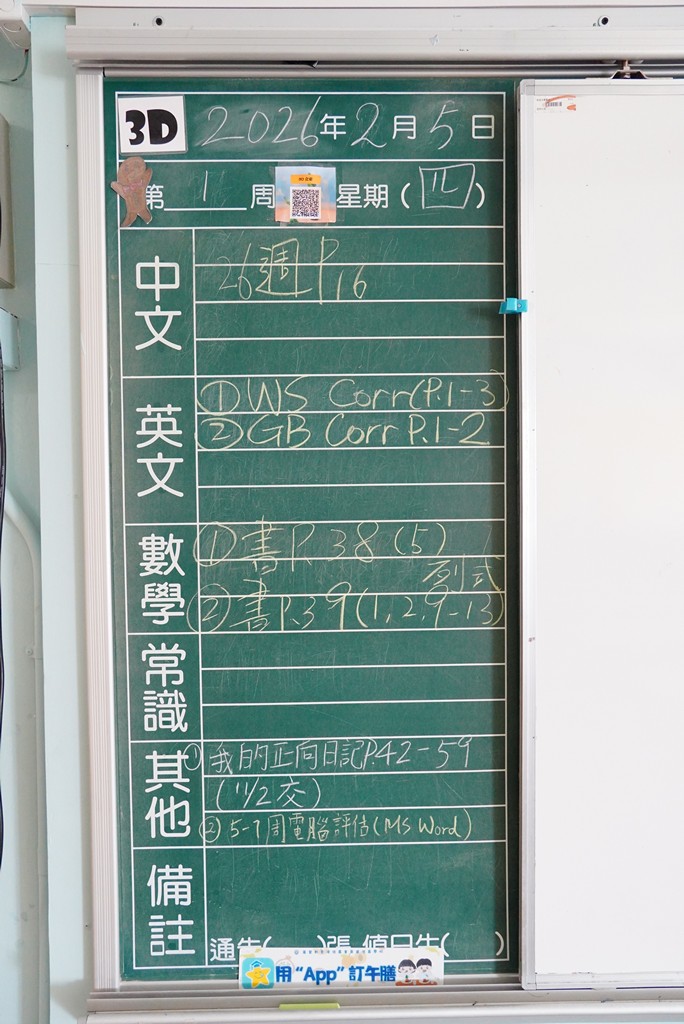 3D 2026年2月5日
第1周 星期(四)
中文
26週 P.16
英文
① WS Corr(P.1-3)
② GB Corr P.1-2
數學
① 書P.38(5)
列式
② 書P.39(1,2,9-13)
常識
其他
① 我的正向日記P.42-59
(11/2交)
② 5-7周電腦評估(MS Word)
備註
通告( )張 值日生( )
用“App”訂午膳